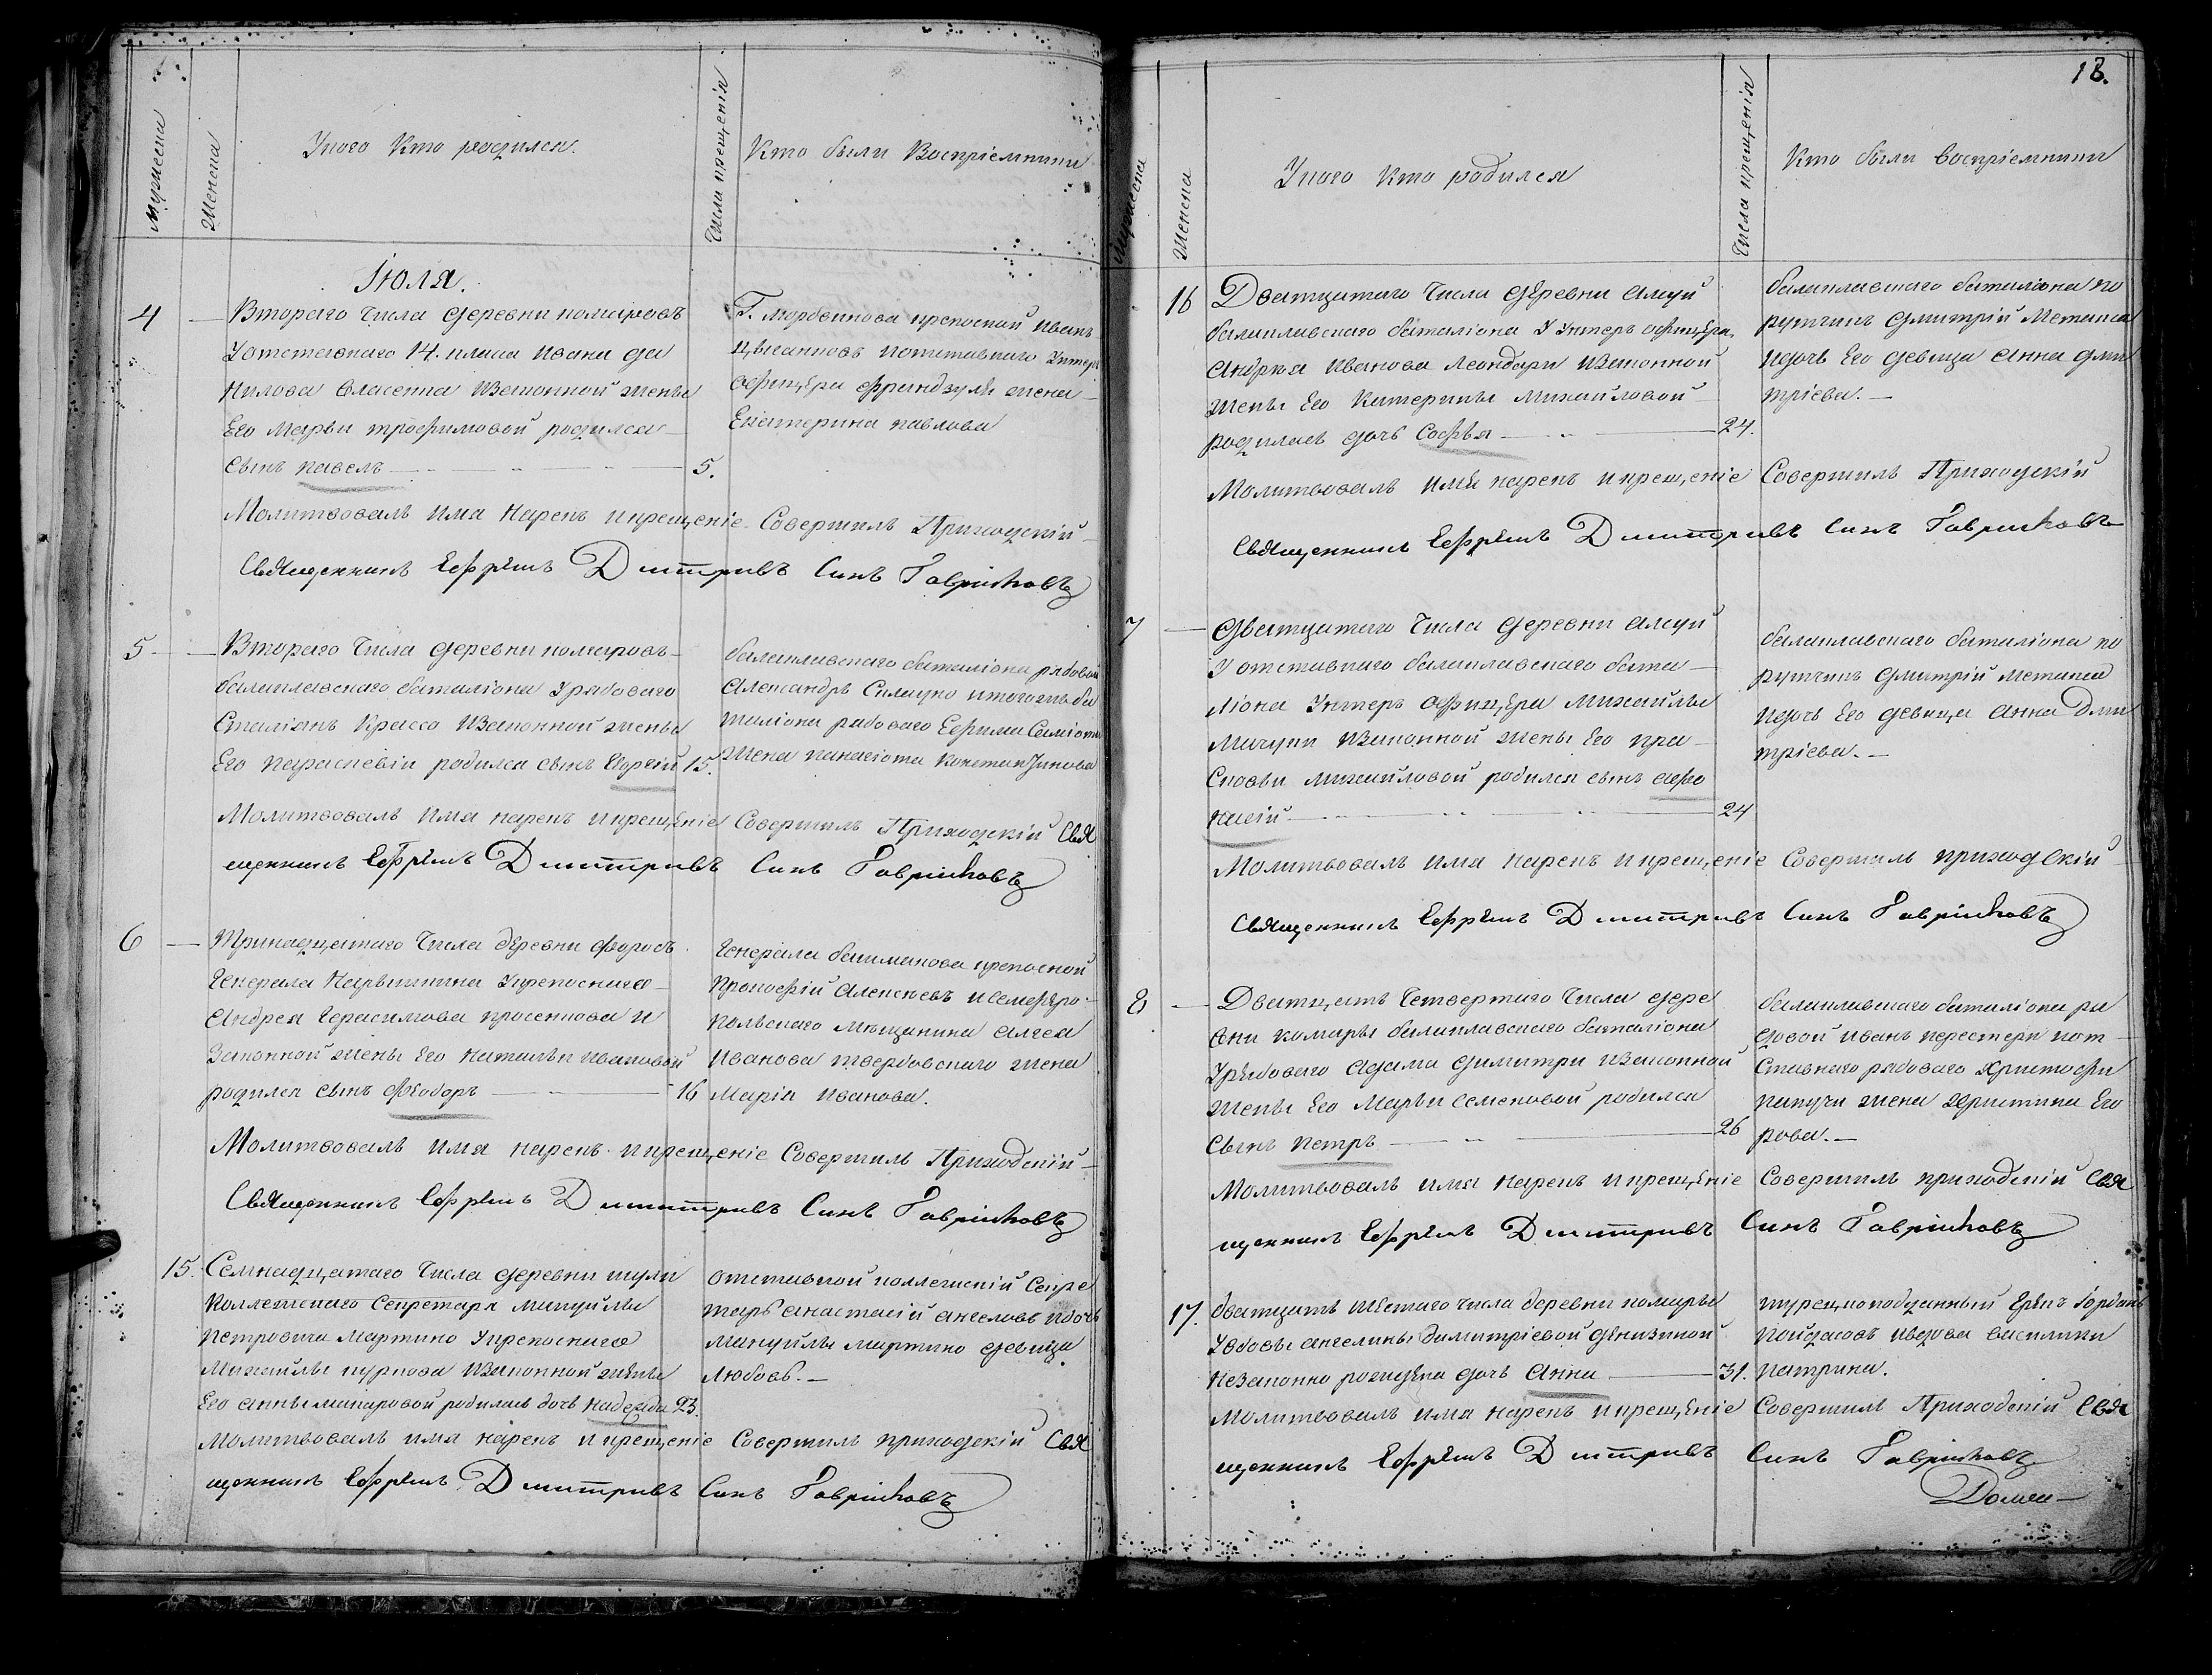 Мужеска
Женска
У кого Кто родился.
Числа крещенія
Кто были Воспріемники
Іюля.
4
Втораго Числа деревни комаровъ
У отставнаго 14. класа Ивана Да
нилова Власенка Изаконной жены
Его Марьи трофимовой родился
Сынъ павелъ 5.
Г. мордвинова крепосной Иванъ
Цыганковъ иотставнаго Унтер
офицера Францзуля жена
Екатерина павлова
Молитвовалъ Имя Нарекъ икрещеніе Совершилъ Приходскій
Священникъ Ефремъ Дмитривъ Синъ Гавриковъ
5
Втораго Числа деревни комаровъ
балаклавскаго баталіона Урядоваго
Стаміянъ Крассо Изаконной жены
Его параскевіи родился сынъ Георгій 15.
балаклавскаго баталіона рядовой
Александръ Сулацко итогожъ ба
таліона рядоваго Ефима Саміоти
Жена панагіота Константинова
Молитвовалъ Имя нарекъ икрещеніе Совершилъ Приходскій Свя
щенникъ Ефремъ Дмитривъ Синъ Гавриковъ
6
Тринадцатаго Числа деревни форосъ
Генерала Нарышкина Укрепоснаго
Андрея Герасимова просенкова и
Законной жены Его Натальи Ивановой
родился сынъ Феодоръ 16
Генерала башмакова крепосной
Прокофій Алексеевъ иСемферо-
польскаго мещанина Алгея
Иванова твердовскаго жена
Марія Иванова.
Молитвовалъ имя нарекъ икрещеніе Совершилъ Приходскій
Священникъ Ефремъ Дмитривъ Синъ Гавриковъ
15.
Семнадцатаго Числа деревни шули
Коллежскаго Секретаря мануйлы
Петровича Мартино Укрепоснаго
Михайлы куркова Изаконной жены
Его анны макаровой родилась дочь надежда 23.
отставной коллежскій Секре
тарь анастасій ангеловъ идочь
Мануйлы мартино девица
любовь.
Молитвовалъ имя нарекъ и крещеніе Совершилъ приходскій Свя
щенникъ Ефремъ Дмитривъ Синъ Гавриковъ
18.
Мужеска
Женска
У кого Кто родился
Числа крещенія
Кто были воспріемники
16
Дватцатаго Числа деревни алсуй
балаклавскаго баталіона У Унтеръ офицера
Андрея Иванова Леондари Изаконной
жены Его Катерины Михайловой
родилась дочь Софья 24.
балаклавскаго баталіона по
ручикъ Дмитрій Метакса
идочь Его девица Анна дми
тріева.
Молитвовалъ имя нарекъ икрещеніе Совершилъ Приходскій
Священникъ Ефремъ Дмитривъ Синъ Гавриковъ
7
Дватцатаго Числа деревни алсуй
У отставнаго балаклавскаго бата
ліона Унтеръ офицера Михайлы
Мачуки Изаконной жены Его пра
сковьи михайловой родился сынъ афо
насій 24
балаклавскаго баталіона по
ручикъ дмитрій метакса
идочь Его девица Анна Дми
тріева.
Молитвовалъ имя нарекъ икрещеніе Совершилъ приходскій
Священникъ Ефремъ Дмитривъ Синъ Гавриковъ
8
Дватцать Четвертаго Числа дере
вни комары балаклавскаго баталіона
Урядоваго Адама димитри Изаконной
жены Его Марьи Семеновой родился
Сынъ петръ 26
балаклавскаго баталіона ря
довой иванъ перестери иот
ставнаго рядоваго Христофи
папучи жена христина Его
рова.
Молитвовалъ имя нарекъ икрещеніе Совершилъ приходскій Свя
щенникъ Ефремъ Дмитривъ Синъ Гавриковъ
17.
дватцать шестаго числа деревни комары
Увдовы ангелины димитріевой денизиной
незаконно рождена дочь Анна 31.
турецкоподданный грекъ Іорданъ
пойдасовъ ивдова василики
патрина.
Молитвовалъ имя нарекъ икрещеніе Совершилъ Приходскій Свя
щенникъ Ефремъ Дмитривъ Синъ Гавриковъ